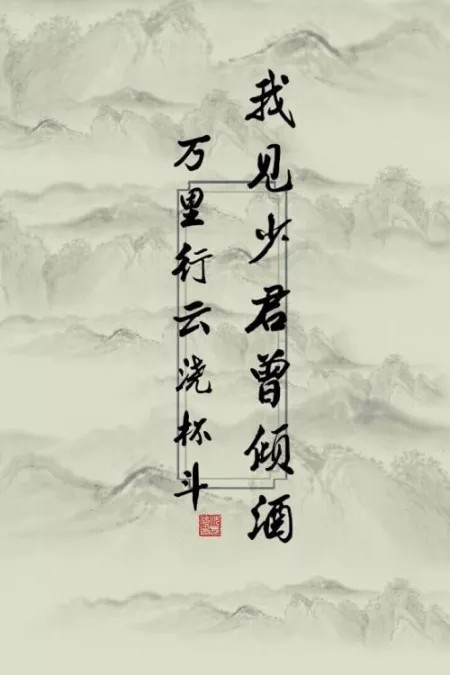 我见少君曾倾酒
万里行云浇杯斗